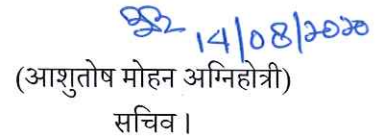 14/08/2020
(आशुतोष मोहन अग्निहोत्री)
सचिव।